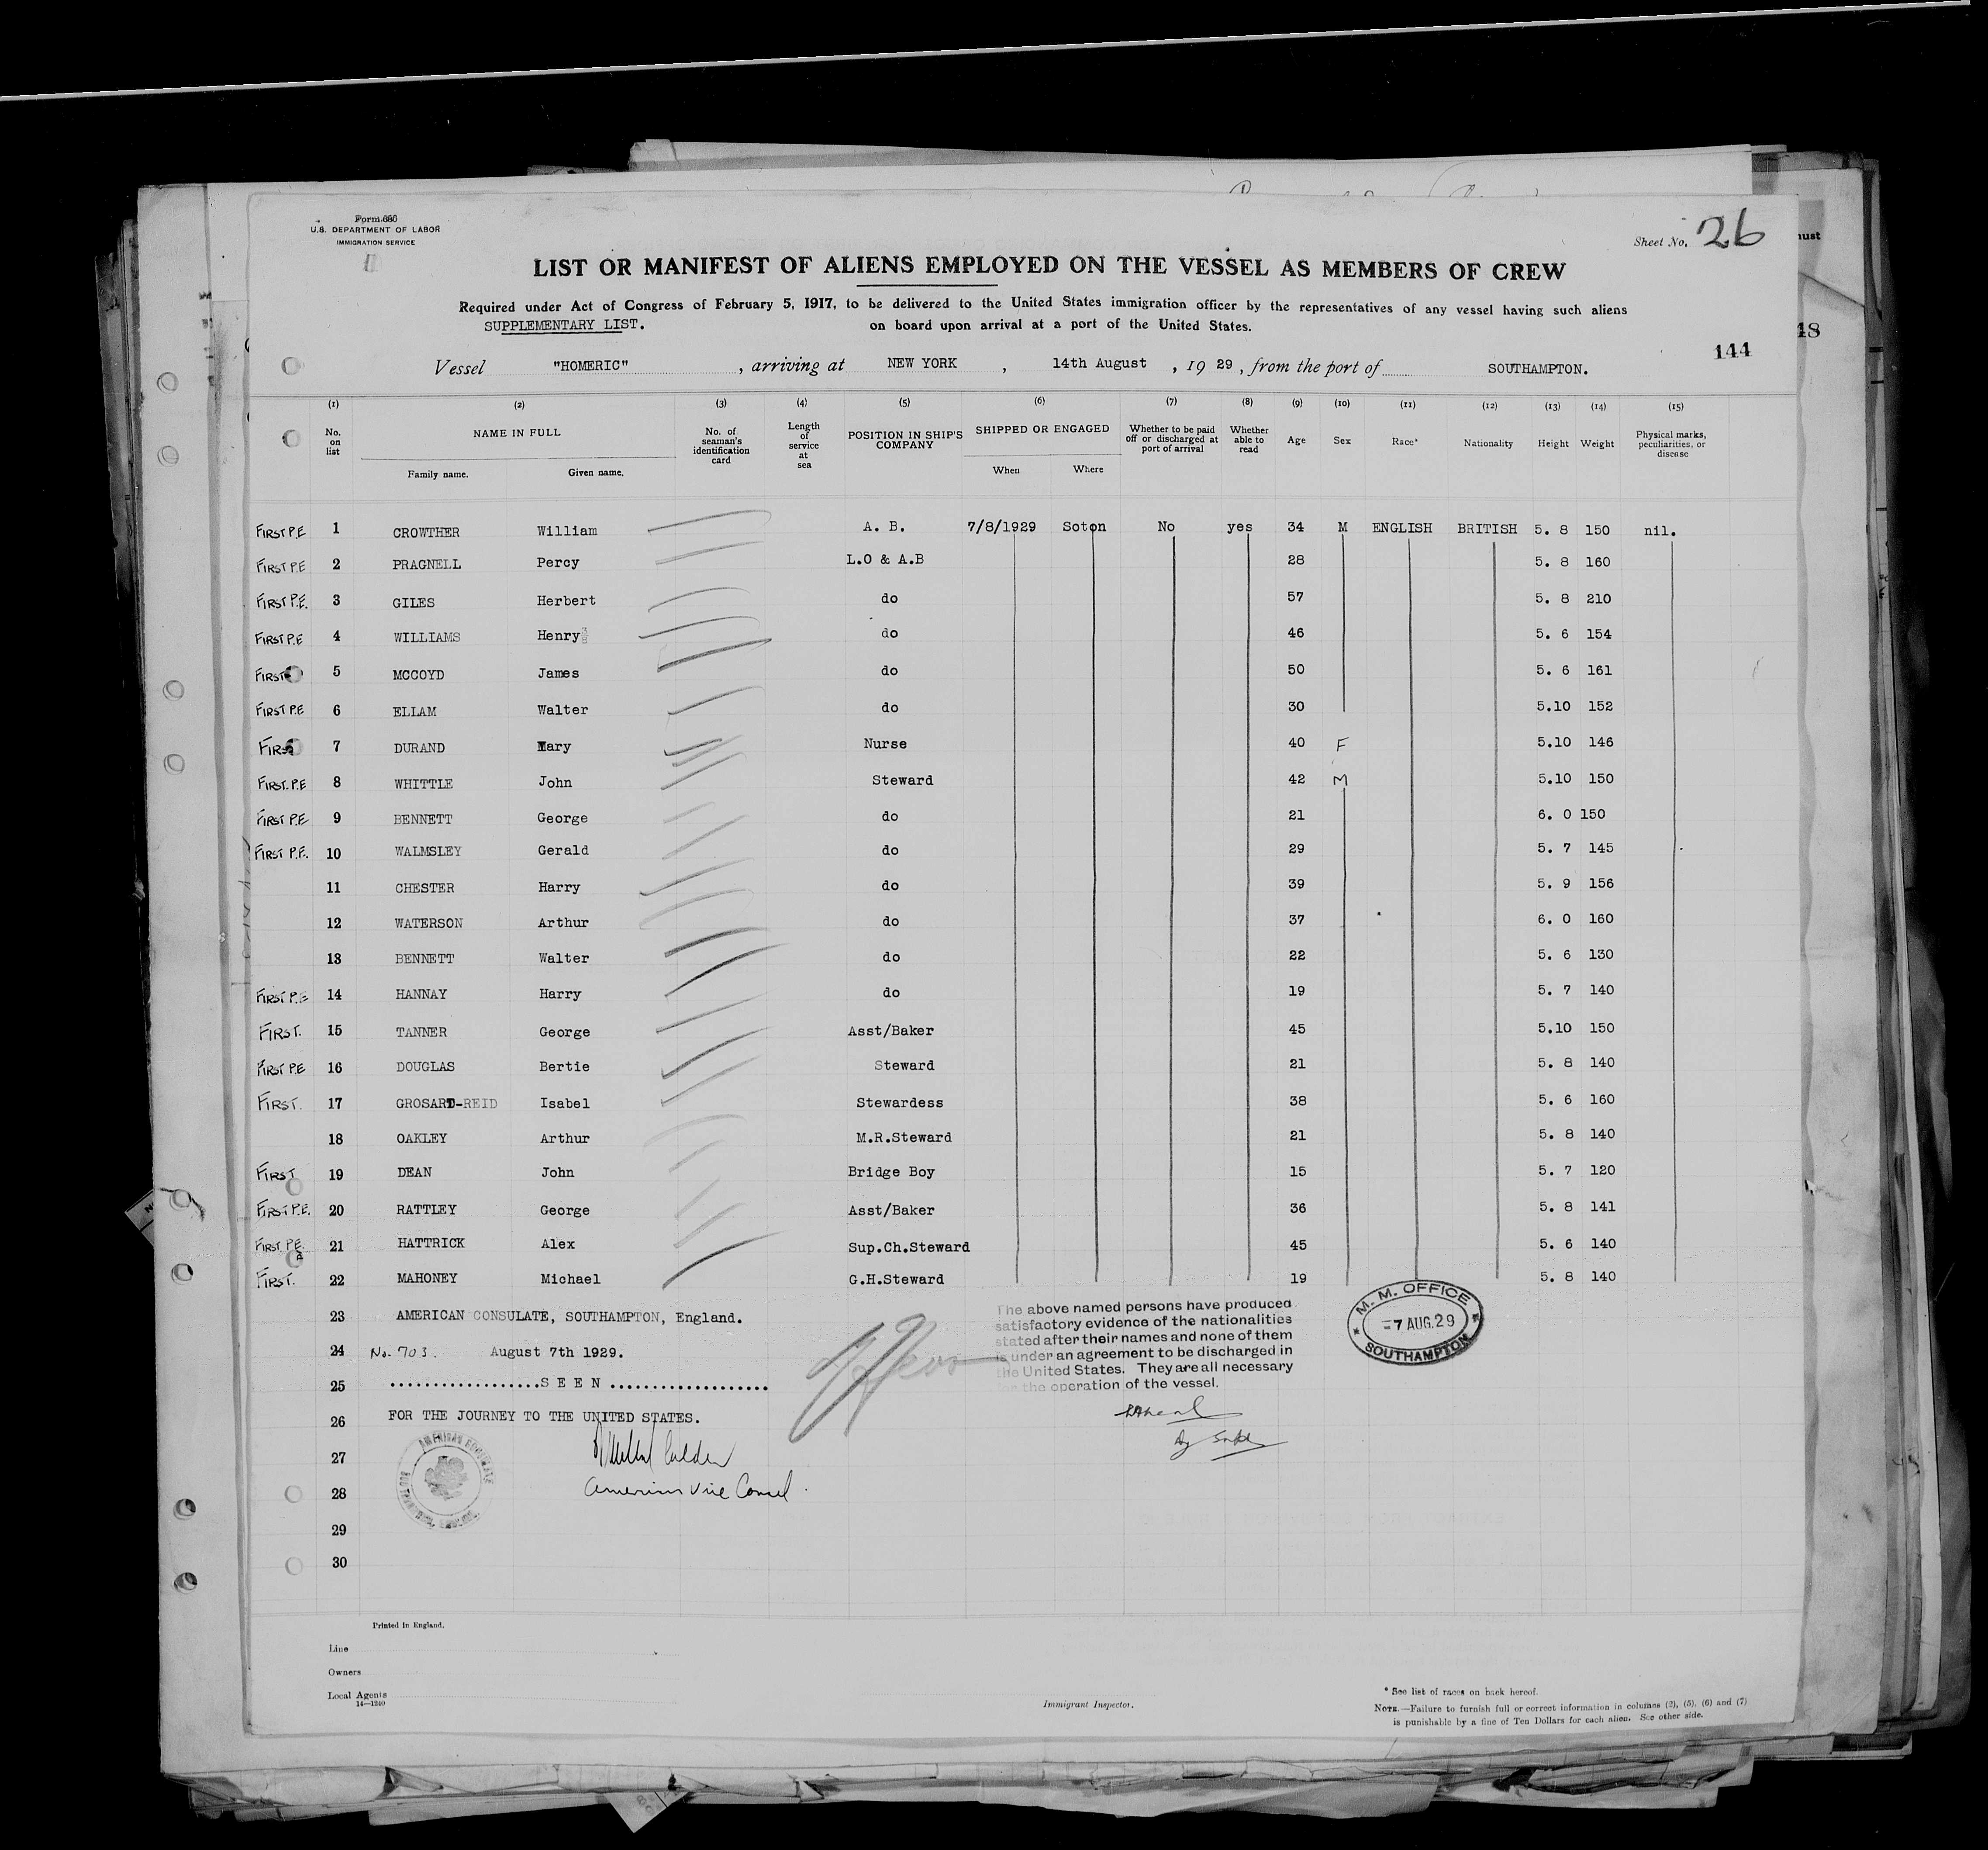 Form 680
U.S. DEPARTMENT OF LABOR
IMMIGRATION SERVICE
Sheet No. 26
LIST OR MANIFEST OF ALIENS EMPLOYED ON THE VESSEL AS MEMBERS OF CREW
Required under Act of Congress of February 5, 1917, to be delivered to the United States immigration officer by the representatives of any vessel having such aliens
SUPPLEMENTARY LIST. on board upon arrival at a port of the United States.
144
48
Vessel "HOMERIC", arriving at NEW YORK, 14th August, 19 29, from the port of SOUTHAMPTON.
(1) (2) (3) (4) (5) (6) (7) (8) (9) (10) (11) (12) (13) (14) (15)
No. on list NAME IN FULL Family name. Given name. No. of seaman's identification card Length of service at sea POSITION IN SHIP'S COMPANY SHIPPED OR ENGAGED When Where Whether to be paid off or discharged at port of arrival Whether able to read Age Sex Race* Nationality Height Weight Physical marks, peculiarities, or disease
FIRST P.E 1 CROWTHER William A. B. 7/8/1929 Soton No yes 34 M ENGLISH BRITISH 5. 8 150 nil.
FIRST P.E 2 PRAGNELL Percy L.O & A.B 28 5. 8 160
FIRST P.E. 3 GILES Herbert do 57 5. 8 210
FIRST P.E 4 WILLIAMS Henry do 46 5. 6 154
FIRST 5 MCCOYD James do 50 5. 6 161
FIRST P.E 6 ELLAM Walter do 30 5.10 152
FIRST 7 DURAND Mary Nurse 40 F 5.10 146
FIRST. P.E 8 WHITTLE John Steward 42 M 5.10 150
FIRST P.E 9 BENNETT George do 21 6. 0 150
FIRST P.E. 10 WALMSLEY Gerald do 29 5. 7 145
11 CHESTER Harry do 39 5. 9 156
12 WATERSON Arthur do 37 6. 0 160
13 BENNETT Walter do 22 5. 6 130
FIRST P.E 14 HANNAY Harry do 19 5. 7 140
FIRST. 15 TANNER George Asst/Baker 45 5.10 150
FIRST P.E 16 DOUGLAS Bertie Steward 21 5. 8 140
FIRST. 17 GROSART-REID Isabel Stewardess 38 5. 6 160
18 OAKLEY Arthur M.R.Steward 21 5. 8 140
FIRST 19 DEAN John Bridge Boy 15 5. 7 120
FIRST P.E. 20 RATTLEY George Asst/Baker 36 5. 8 141
FIRST. P.E. 21 HATTRICK Alex Sup.Ch.Steward 45 5. 6 140
FIRST. 22 MAHONEY Michael G.H.Steward 19 5. 8 140
23 AMERICAN CONSULATE, SOUTHAMPTON, England.
24 No. 703. August 7th 1929.
25 ..................S E E N ...................
26 FOR THE JOURNEY TO THE UNITED STATES.
27
28 American Vice Consul.
29
30
The above named persons have produced
satisfactory evidence of the nationalities
stated after their names and none of them
is under an agreement to be discharged in
the United States. They are all necessary
for the operation of the vessel.
M. M. OFFICE
7 AUG. 29
SOUTHAMPTON
Printed in England.
Line
Owners
Local Agents
14—1240
Immigrant Inspector.
* See list of races on back hereof.
NOTE.—Failure to furnish full or correct information in columns (2), (5), (6) and (7)
is punishable by a fine of Ten Dollars for each alien. See other side.